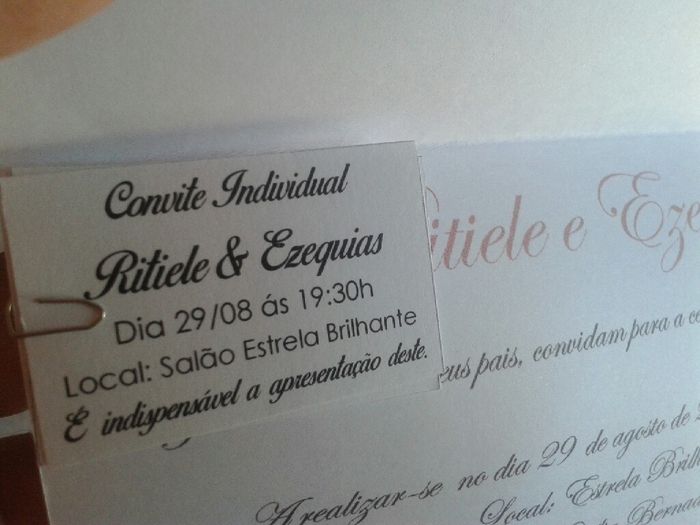 Convite Individual
Ritiele & Ezequias
Dia 29/08 ás 19:30h
Local: Salão Estrela Brilhante
É indispensável a apresentação deste.
itiele e Eze
eus pais, convidam para a ce
A realizar-se no dia 29 de agosto de 2
Local: Estrela Brilh
Bernad